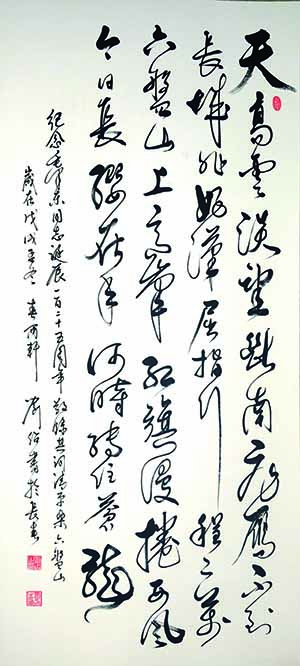 天高雲淡望斷南飛雁不到
長城非好漢屈指行程二萬
六盤山上高峰紅旗漫捲西風
今日長纓在手何時縛住蒼龍
紀念毛澤東同志誕辰一百二十五周年敬錄其詞清平樂六盤山
歲在戊戌冬軒劉於長春